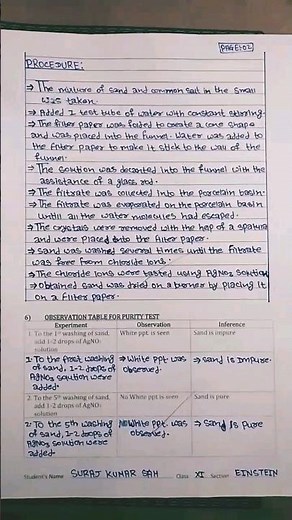 PAGE:02
PROCEDURE:
→ The mixture of sand and common salt in the small
was taken.
→ Added 1 test tube of water with constant stirring.
→ The filter paper was folded to create a cone shape
and was placed into the funnel. Water was added to
the filter paper to make it stick to the wall of the
funnel.
→ The solution was decanted into the funnel with the
assistance of a glass rod.
→ The filtrate was collected into the porcelain basin.
→ The filtrate was evaporated on the porcelain basin
until all the water molecules had escaped.
→ The crystals were removed with the help of a spatula
and were placed onto the filter paper.
→ sand was washed several times until the filtrate
was free from chloride ions.
→ The chloride ions were tested using AgNO3 solution
→ obtained sand was dried on a burner by placing it
on a filter paper.
6) OBSERVATION TABLE FOR PURITY TEST
Experiment Observation Inference
1. To the 1st washing of sand, White ppt. is seen Sand is impure
add 1-2 drops of AgNO3
solution
1. To the first washing → White ppt. was → sand is impure.
of sand, 1-2 drops of observed.
AgNO3 solution were
added.
2. To the 5th washing of sand, No White ppt. is seen Sand is pure
add 1-2 drops of AgNO3
solution
2. To the 5th washing No White ppt. was → sand is pure
of sand, 1-2 drops of observed.
AgNO3 solution were
added
Student's Name SURAJ KUMAR SAH Class XI Section EINSTEIN